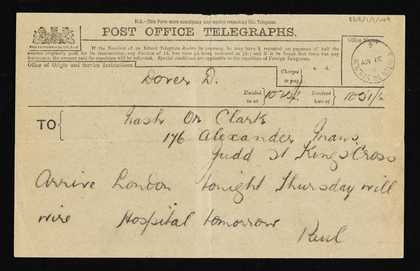 N.B.—This Form must accompany any inquiry respecting this Telegram.
POST OFFICE TELEGRAPHS.
If the Receiver of an Inland Telegram doubts its accuracy, he may have it repeated on payment of half the
amount originally paid for its transmission, any fraction of 1d. less than ½d. being reckoned as ½d.; and if it be found that there was any
inaccuracy, the amount paid for repetition will be refunded. Special conditions are applicable to the repetition of Foreign Telegrams.
Office of Origin and Service Instructions.
Office Stamp.
Dover D.
Charges to pay
Handed in at
Received here at
TO
Nash Or Clark
176 Alexander Mans
Judd St Kings Cross
Arrive London tonight Thursday will
wire Hospital tomorrow
Paul